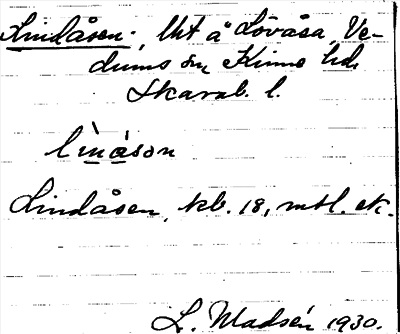 Lindåsen, Utt å Lövåsa, Ve-
dums sn Kinne hd.
Skarab. l.
lìnåson
Lindåsen, kb. 18, mtl. ek.
L. Madsén 1930.